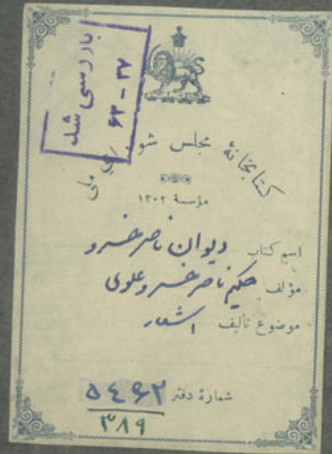 بازرسی شد
۶۳ - ۳۷
کتابخانهٔ مجلس شورای ملی
مؤسسهٔ ۱۳۰۲
اسم کتاب دیوان ناصر خسرو
مؤلف حکیم ناصر خسرو علوی
موضوع تألیف اشعار
شمارهٔ دفتر ۵۴۶۲
۳۸۹